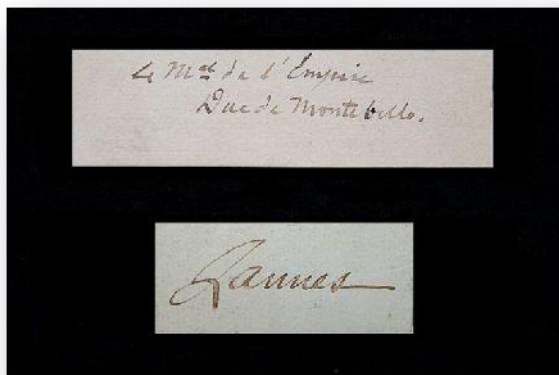 Le Mal de l'Empire
Duc de Montebello.
Lannes